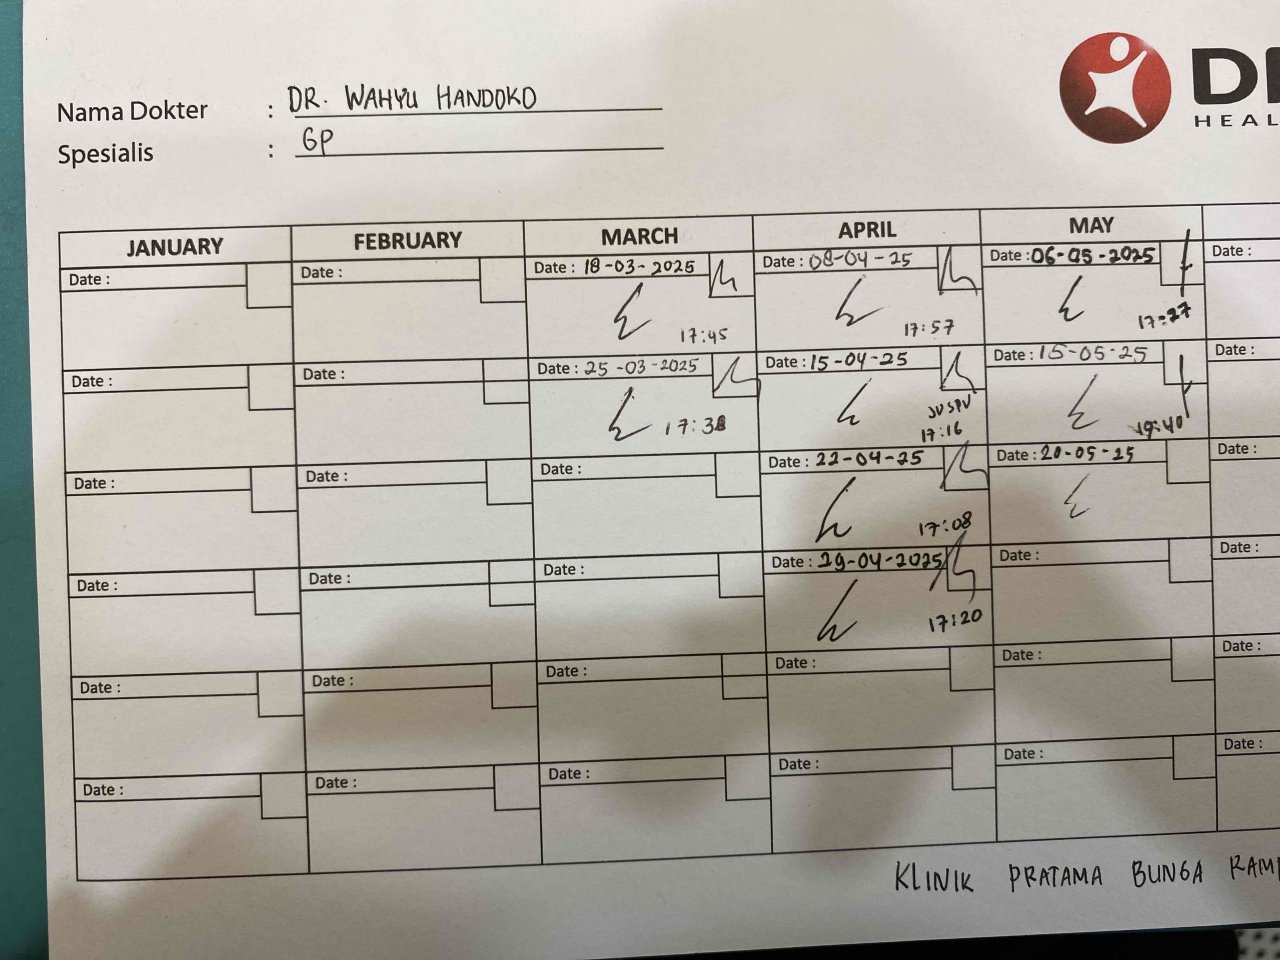 Nama Dokter : DR. WAHYU HANDOKO
Spesialis : GP
HEAL
JANUARY FEBRUARY MARCH APRIL MAY
Date : Date : Date : 18-03-2025 Date : 08-04-25 Date : 06-05-2025 Date :
17:45 17:57 17:27
Date : Date : Date : 25-03-2025 Date : 15-04-25 Date : 15-05-25 Date :
17:38 17:16 19:40
Date : Date : Date : Date : 22-04-25 Date : 20-05-25 Date :
17:08
Date : Date : Date : Date : 29-04-2025 Date : Date :
17:20
Date : Date : Date : Date : Date : Date :
Date : Date : Date : Date : Date : Date :
KLINIK PRATAMA BUNGA RAMP